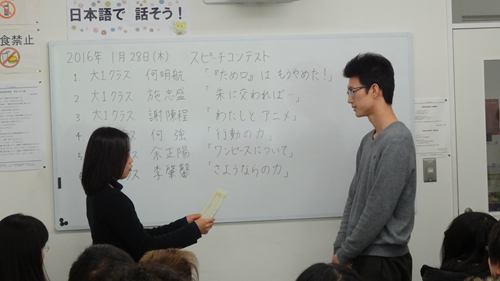 日本語で 話そう!
食禁止
2016年 1月28日(木) スピーチコンテスト
1 大1クラス 何明航 「『ため口』は もうやめた!」
2 大1クラス 施志盛 「朱に交われば…」
3 大1クラス 謝陳程 「わたしと アニメ」
何 強 「行動の力」
余正陽 「ワンピースについて」
李肇 「さようならの力」